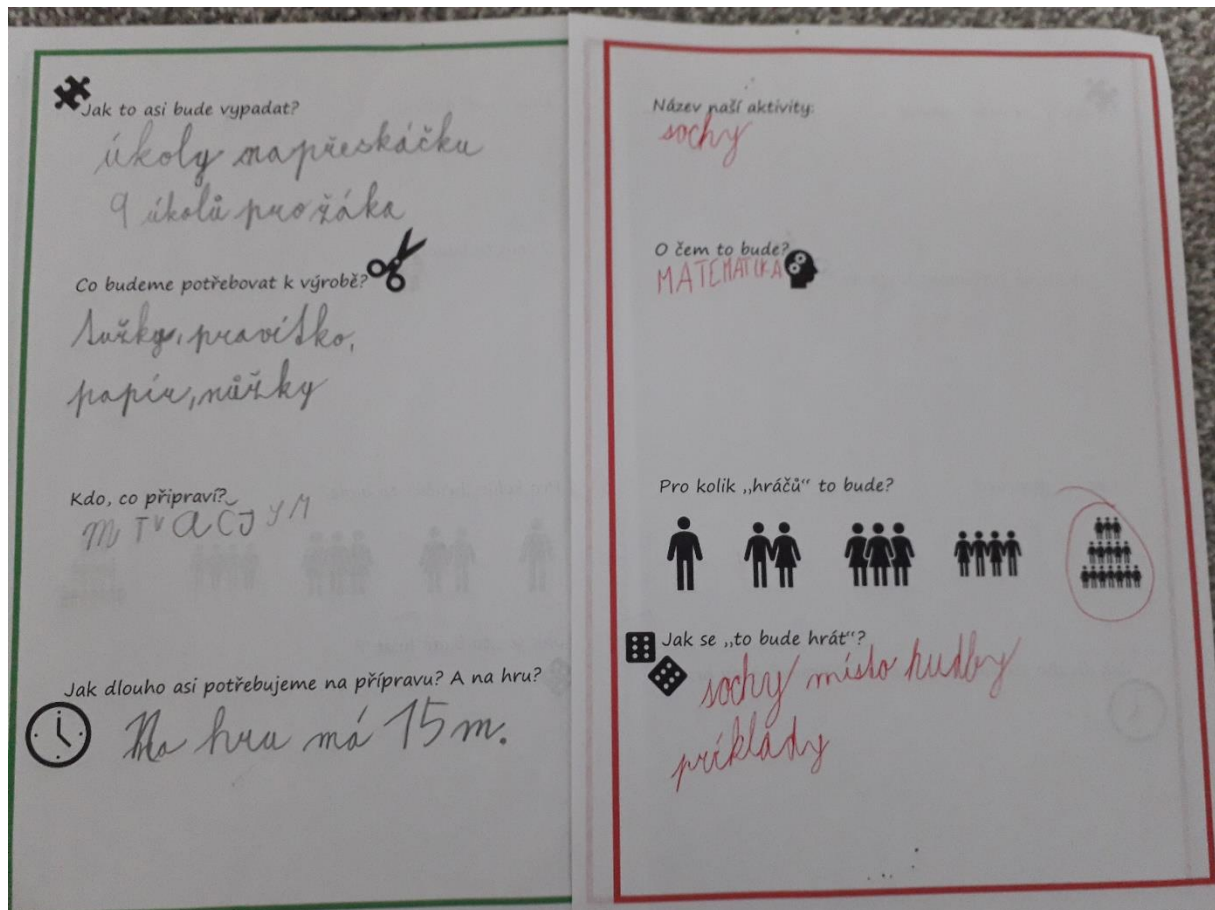 Jak to asi bude vypadat?
úkoly napřeskáčku
9 úkolů pro žáka
Co budeme potřebovat k výrobě?
tužky, pravítko,
papír, nůžky
Kdo, co připraví?
M TV A ČJ
Jak dlouho asi potřebujeme na přípravu? A na hru?
Na hru má 15 m.
Název naší aktivity:
sochy
O čem to bude?
MATEMATIKA
Pro kolik „hráčů“ to bude?
Jak se „to bude hrát“?
sochy místo hudby
príklády